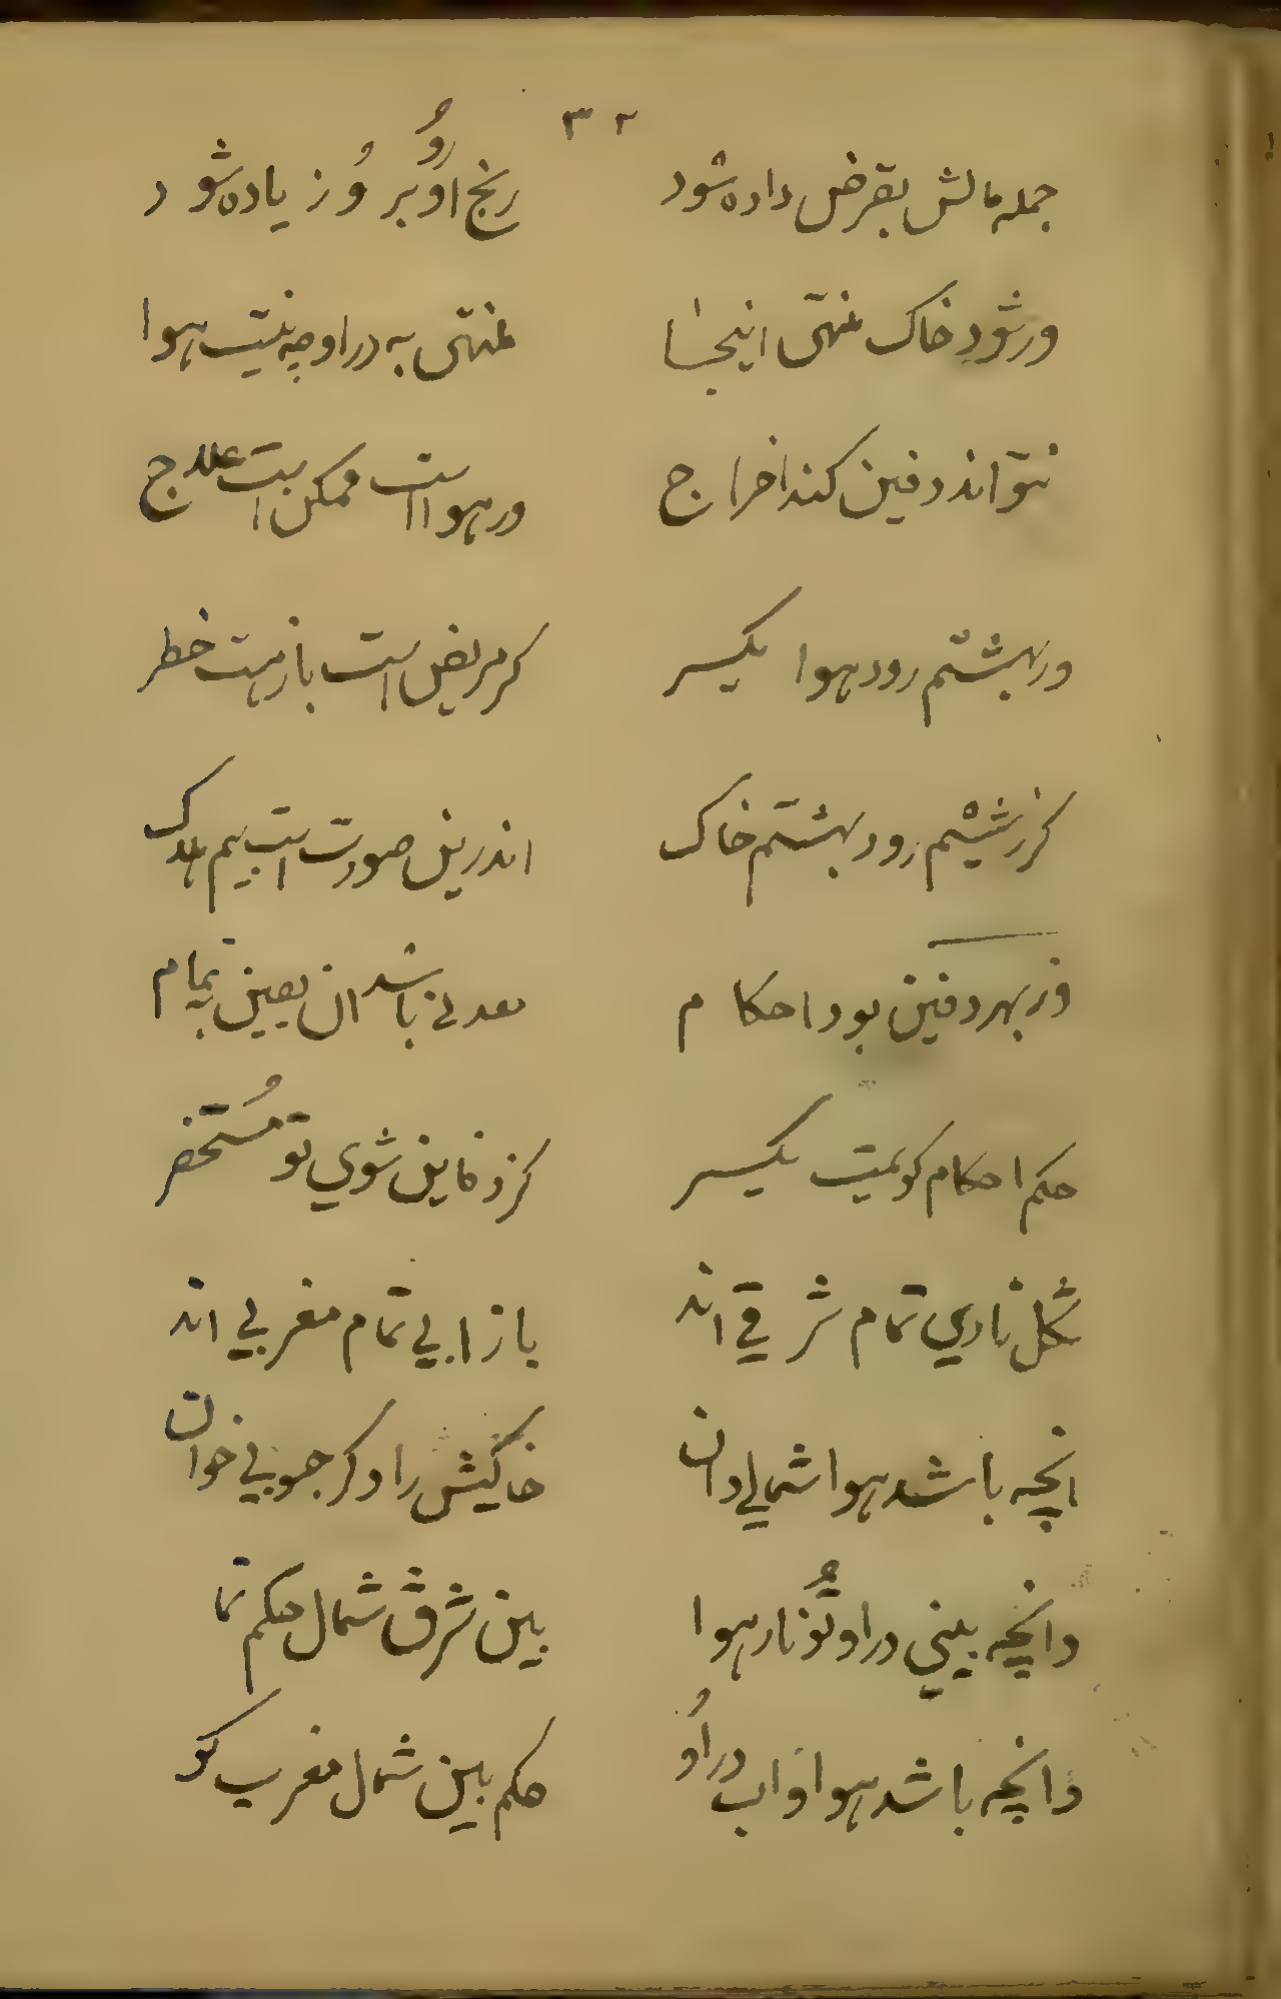 ۳۲
جمله مالش بقرض داده شود رنج او بر وُ زیاده شود
رُو
ور شود خاک منتهی اینجا منتهی به در او چه نیت هوا
نتواند دفین کند اخراج ور هوا است ممکن است علاج
ور بهشتم رود هوا یکسر کر مریض است باز هست خطر
کز ششم رود بهشتم خاک اندرین صورت است بیم هلاک
وز بهر دفین بود احکام معدنی باشد ان یقین بتمام
حکم احکام کویمت یکسر کز دفاین شوی تو مُستحضر
کُل ناری تمام شرقی اند باز ابی تمام مغربی اند
انچه باشد هوا شمالی دان خاکیش را و کر جنوبی خوان
وانچه بینی در او تُو نار هوا بین شرق شمال حکم نما
وانچه باشد هوا و اب در او حکم بین شمال مغرب کو